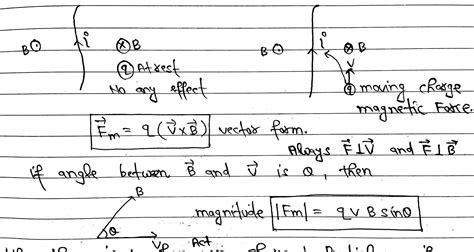 B⊙ i ⊗B B⊙ i ⊗B
q At rest V
No any effect q moving charge
magnetic Force.
F⃗m = q (V⃗×B⃗) vector form.
Always F⃗⊥V⃗ and F⃗⊥B⃗
if angle between B⃗ and V⃗ is θ, then
B
magnitude |Fm| = qvB sinθ
θ